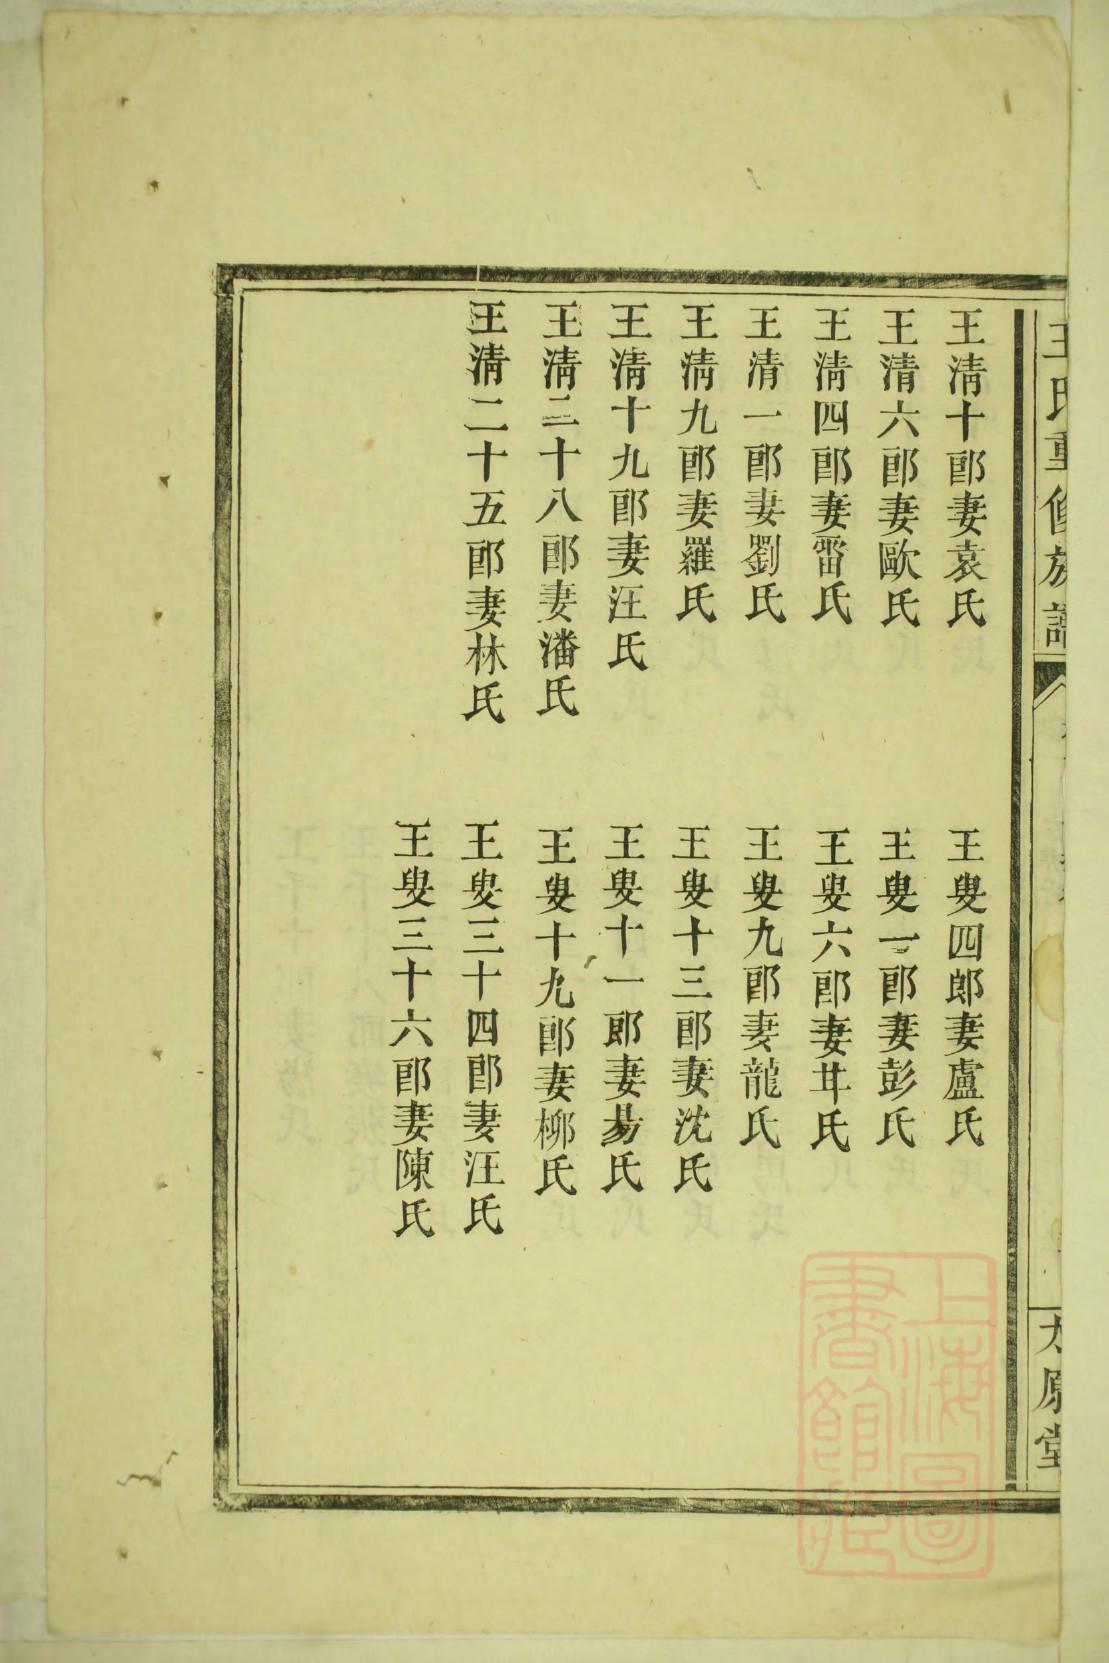 王氏重修族譜
太原堂
王清十郎妻袁氏
王清六郎妻歐氏
王清四郎妻雷氏
王清一郎妻劉氏
王清九郎妻羅氏
王清十九郎妻汪氏
王清二十八郎妻潘氏
王清二十五郎妻林氏
王叟四郎妻盧氏
王叟一郎妻彭氏
王叟六郎妻甘氏
王叟九郎妻龍氏
王叟十三郎妻沈氏
王叟十一郎妻昜氏
王叟十九郎妻柳氏
王叟三十四郎妻汪氏
王叟三十六郎妻陳氏
上海圖
書館藏